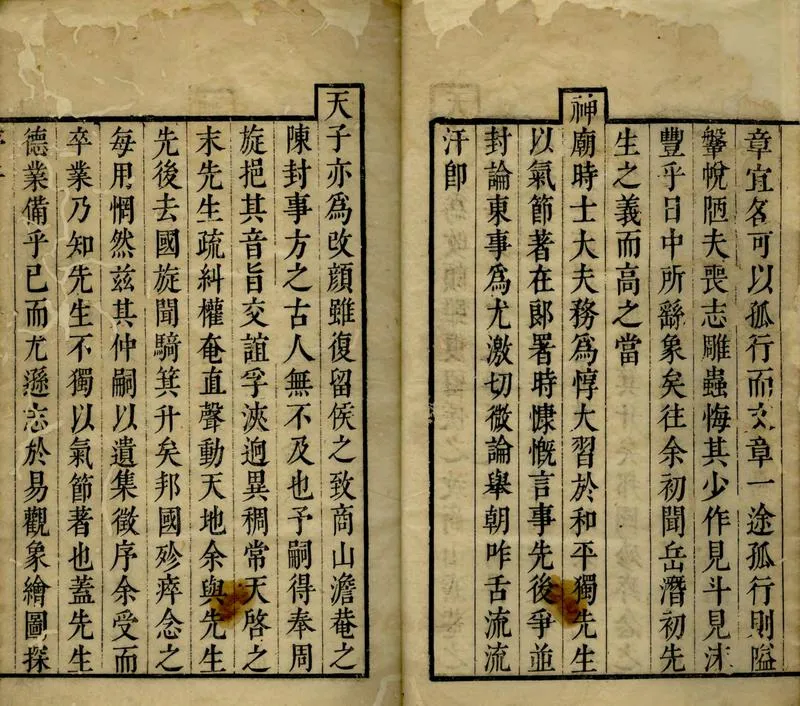 章宜若可以孤行而文章一途孤行則隘
鞶帨陋夫喪志雕蟲悔其少作見斗見沬
豐乎日中所繇象矣往余初聞岳潛初先
生之義而高之當
神廟時士大夫務為惇大習於和平獨先生
以氣節著在郎署時慷慨言事先後爭並
封論東事為尤激切微論舉朝咋舌流流
汗卽
天子亦為改顏雖復留侯之致商山澹菴之
陳封事方之古人無不及也予嗣得奉周
旋挹其音旨交誼孚浹迥異稠常天啓之
末先生疏糾權奄直聲動天地余與先生
先後去國旋聞騎箕升矣邦國殄瘁念之
每用惘然茲其仲嗣以遺集徵序余受而
卒業乃知先生不獨以氣節著也蓋先生
德業備乎已而尤遜志於易觀象繪圖探